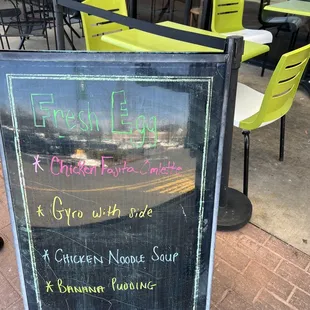 Fresh Egg
* Chicken Fajita Omlette
* Gyro with side
* CHICKEN NOODLE SOUP
* BANANA PUDDING